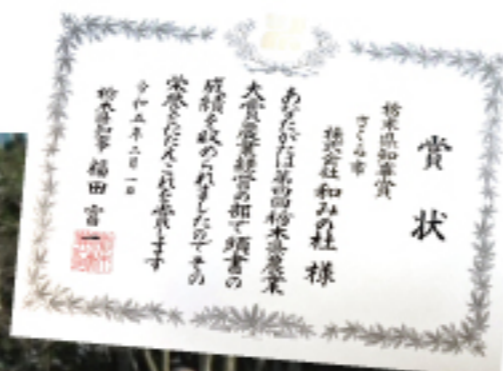 賞状
栃木県知事賞
さくら市
株式会社 和みの杜 様
あなたがたは第四回栃木県農業
大賞農業経営の部で頭書の
成績を収められましたのでその
栄誉をたたえこれを賞します
令和五年二月一日
栃木県知事 福田富一